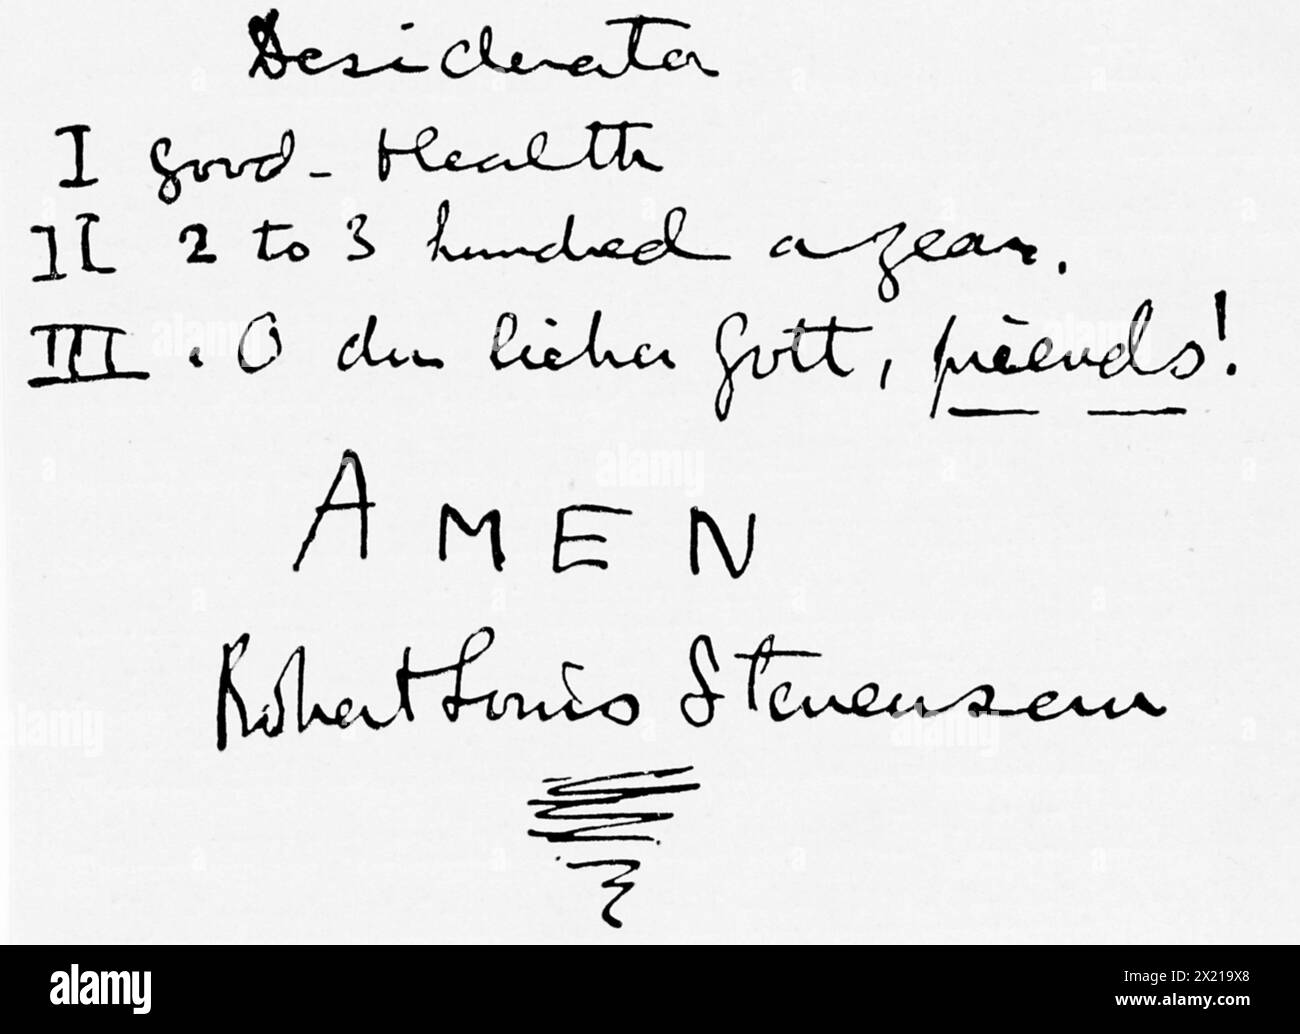 Desiderata
I good-Health
II 2 to 3 hundred a year.
III. O du lieber Gott, friends!
AMEN
Robert Louis Stevenson
alamy
Image ID: 2X219X8
www.alamy.com